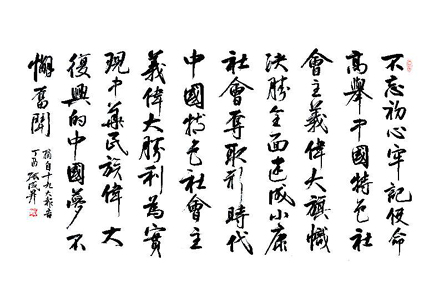 不忘初心牢記使命
高舉中國特色社
會主義偉大旗幟
決勝全面建成小康
社會奪取新時代
中國特色社會主
義偉大勝利為實
現中華民族偉大
復興的中國夢不
懈奮鬥
摘自十九大報告
丁酉